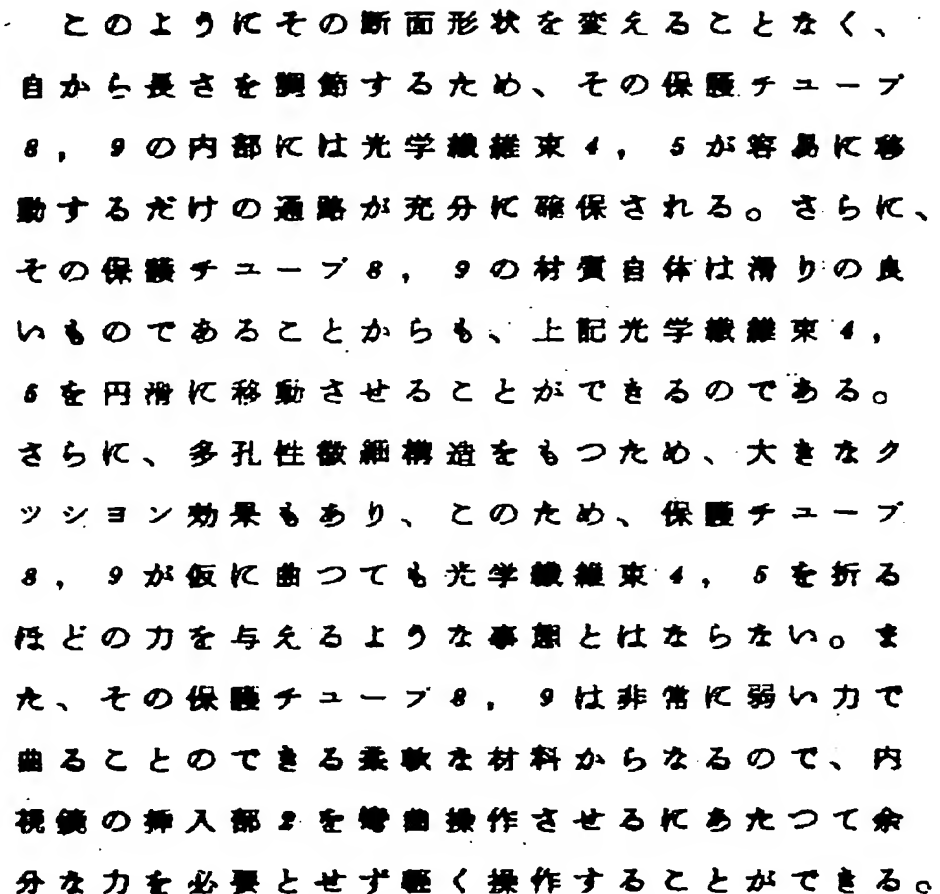 このようにその断面形状を変えることなく、
自から長さを調節するため、その保護チューブ
8，9の内部には光学繊維束4，5が容易に移
動するだけの通路が充分に確保される。さらに、
その保護チューブ8，9の材質自体は滑りの良
いものであることからも、上記光学繊維束4，
5を円滑に移動させることができるのである。
さらに、多孔性微細構造をもつため、大きなク
ッション効果もあり、このため、保護チューブ
8，9が仮に曲つても光学繊維束4，5を折る
ほどの力を与えるような事態とはならない。ま
た、その保護チューブ8，9は非常に弱い力で
曲ることのできる柔軟な材料からなるので、内
視鏡の挿入部2を彎曲操作させるにあたつて余
分な力を必要とせず軽く操作することができる。